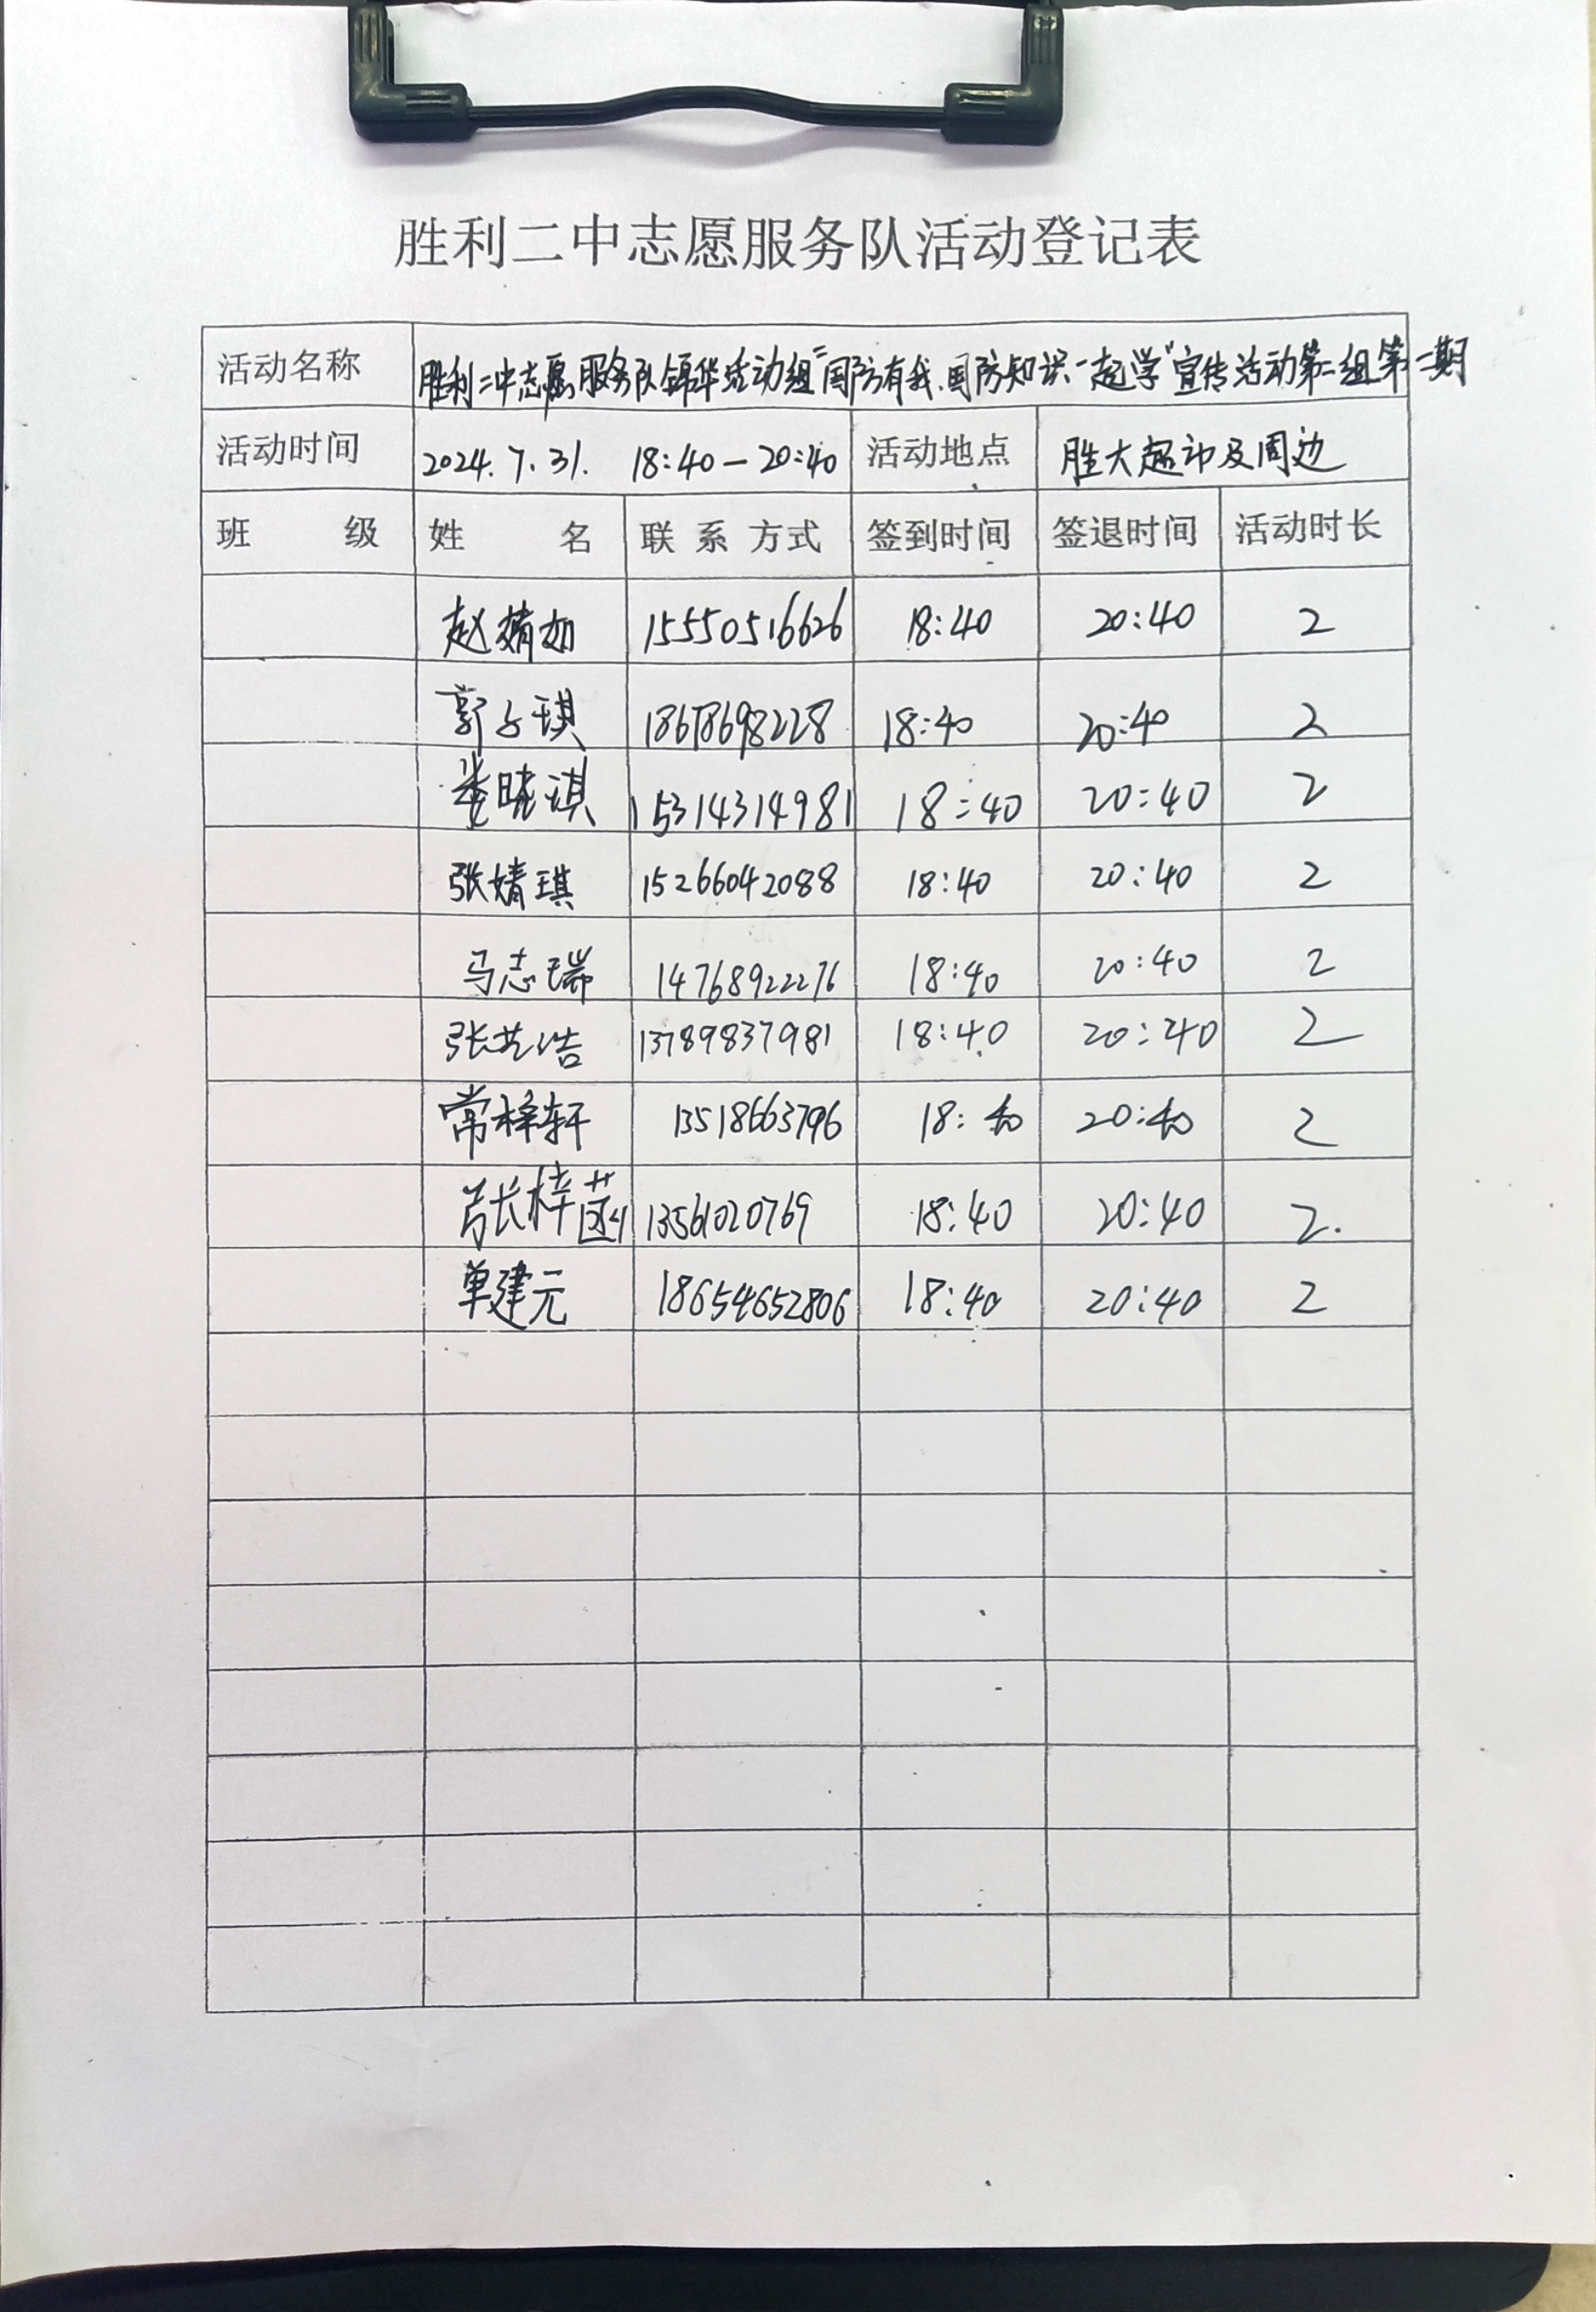 胜利二中志愿服务队活动登记表
活动名称 胜利二中志愿服务队锦华活动组“国防有我,国防知识一起学”宣传活动第二组第一期
活动时间 2024.7.31. 18:40—20:40 活动地点 胜大超市及周边
班 级 姓 名 联系方式 签到时间 签退时间 活动时长
赵婧如 15550516626 18:40 20:40 2
郭子琪 18678698228 18:40 20:40 2
娄晓琪 15314314981 18:40 20:40 2
张婧琪 15266042088 18:40 20:40 2
马志瑞 14768922276 18:40 20:40 2
张艺浩 13789837981 18:40 20:40 2
常梓轩 13518663796 18:40 20:40 2
张梓菡 13561020769 18:40 20:40 2.
单建元 18654652806 18:40 20:40 2